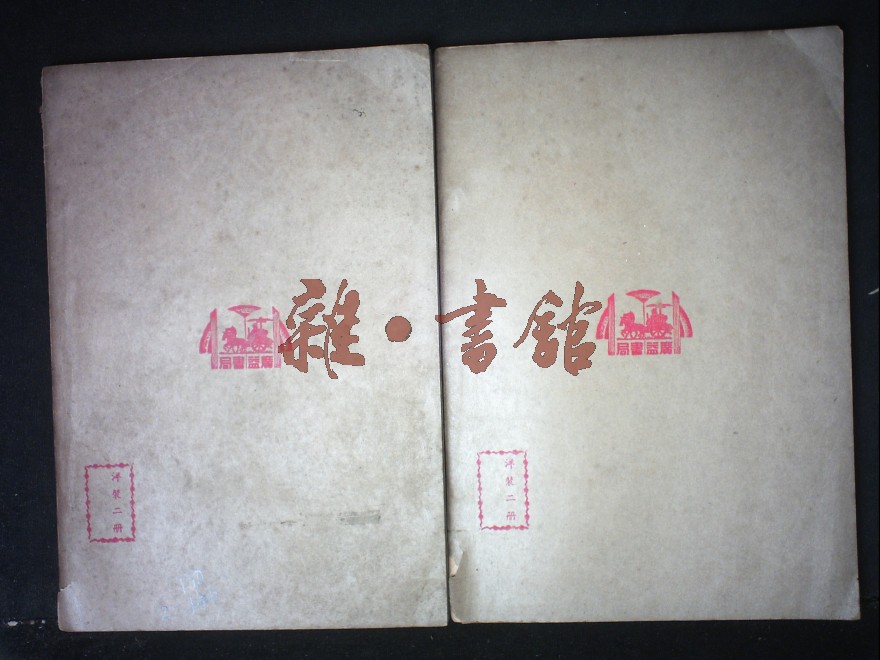 雜·書館
廣益書局
廣益書局
洋裝二册
洋裝二册